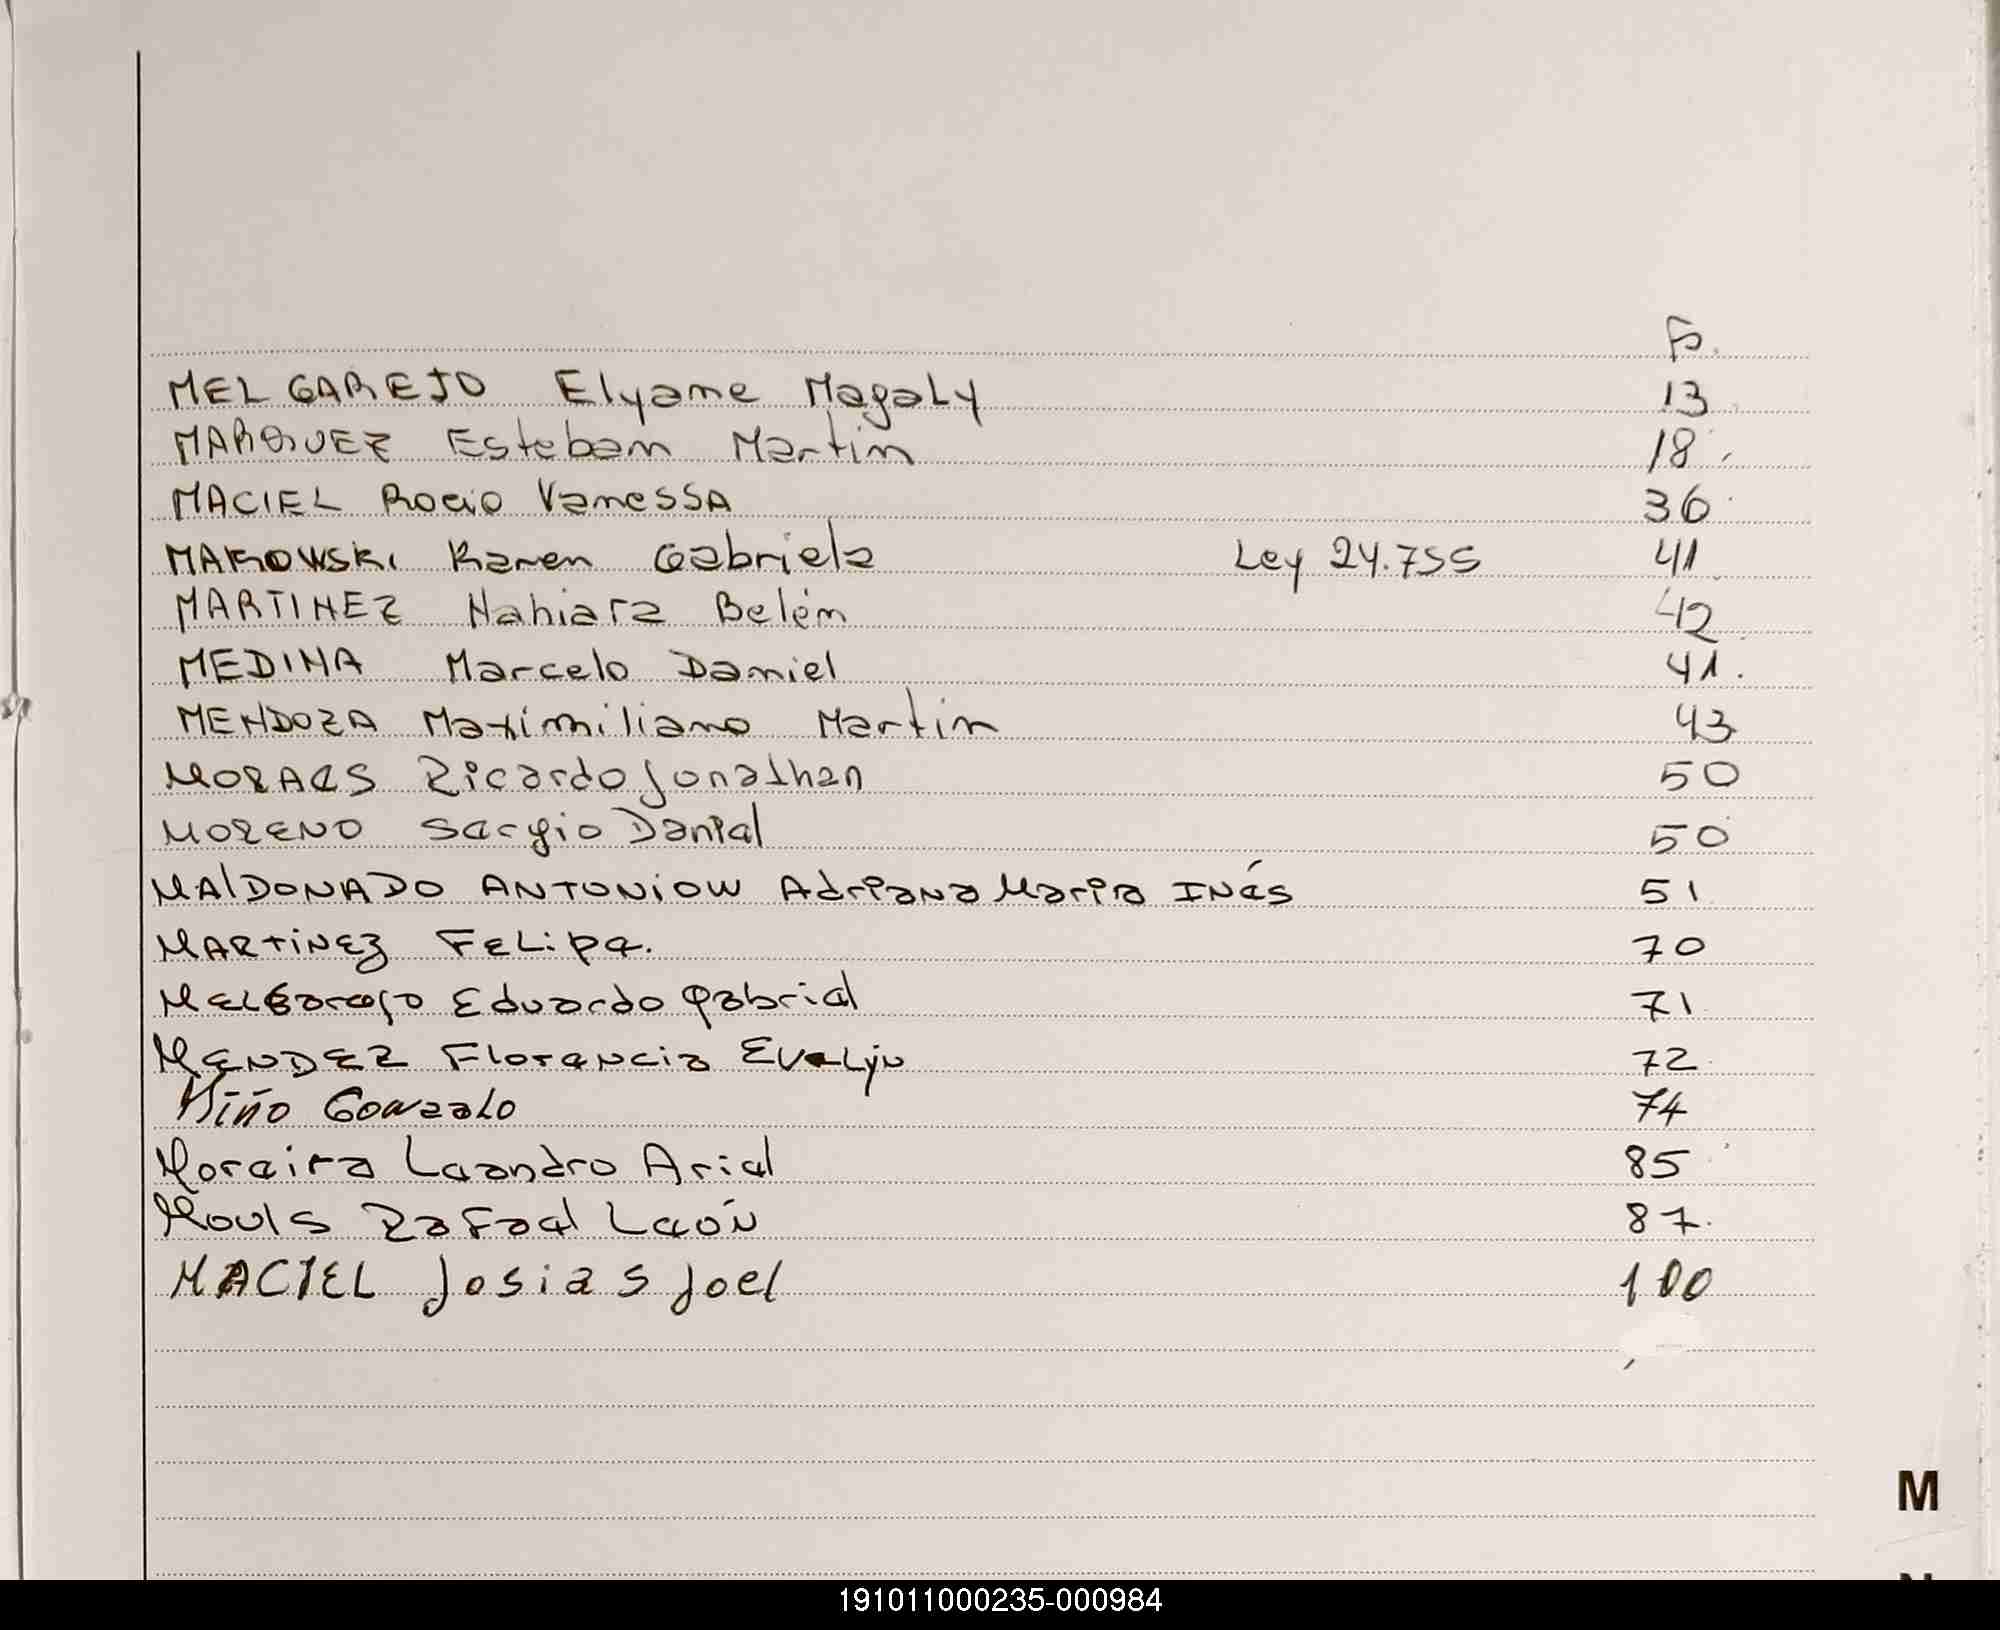 Fo.
MELGAREJO Elyane Magaly 13
MARQUEZ Esteban Martin 18
MACIEL Rocio Vanessa 36
MAKOWSKI Karen Gabriela Ley 24.755 41
MARTINEZ Nahiara Belén 42
MEDINA Marcelo Daniel 41.
MENDOZA Maximiliano Martin 43
MORAES Ricardo Jonathan 50
MORENO Sergio Daniel 50
MALDONADO ANTONIOW Adriana Maria INés 51
MARTiNEZ FELipe. 70
MELGarejo Eduardo Gabriel 71
MENDEZ Florencia Evelyn 72
Miño Gonzalo 74
Moreira Leandro Ariel 85
Mouls Rafael León 87.
MACIEL Josias Joel 100
M
191011000235-000984